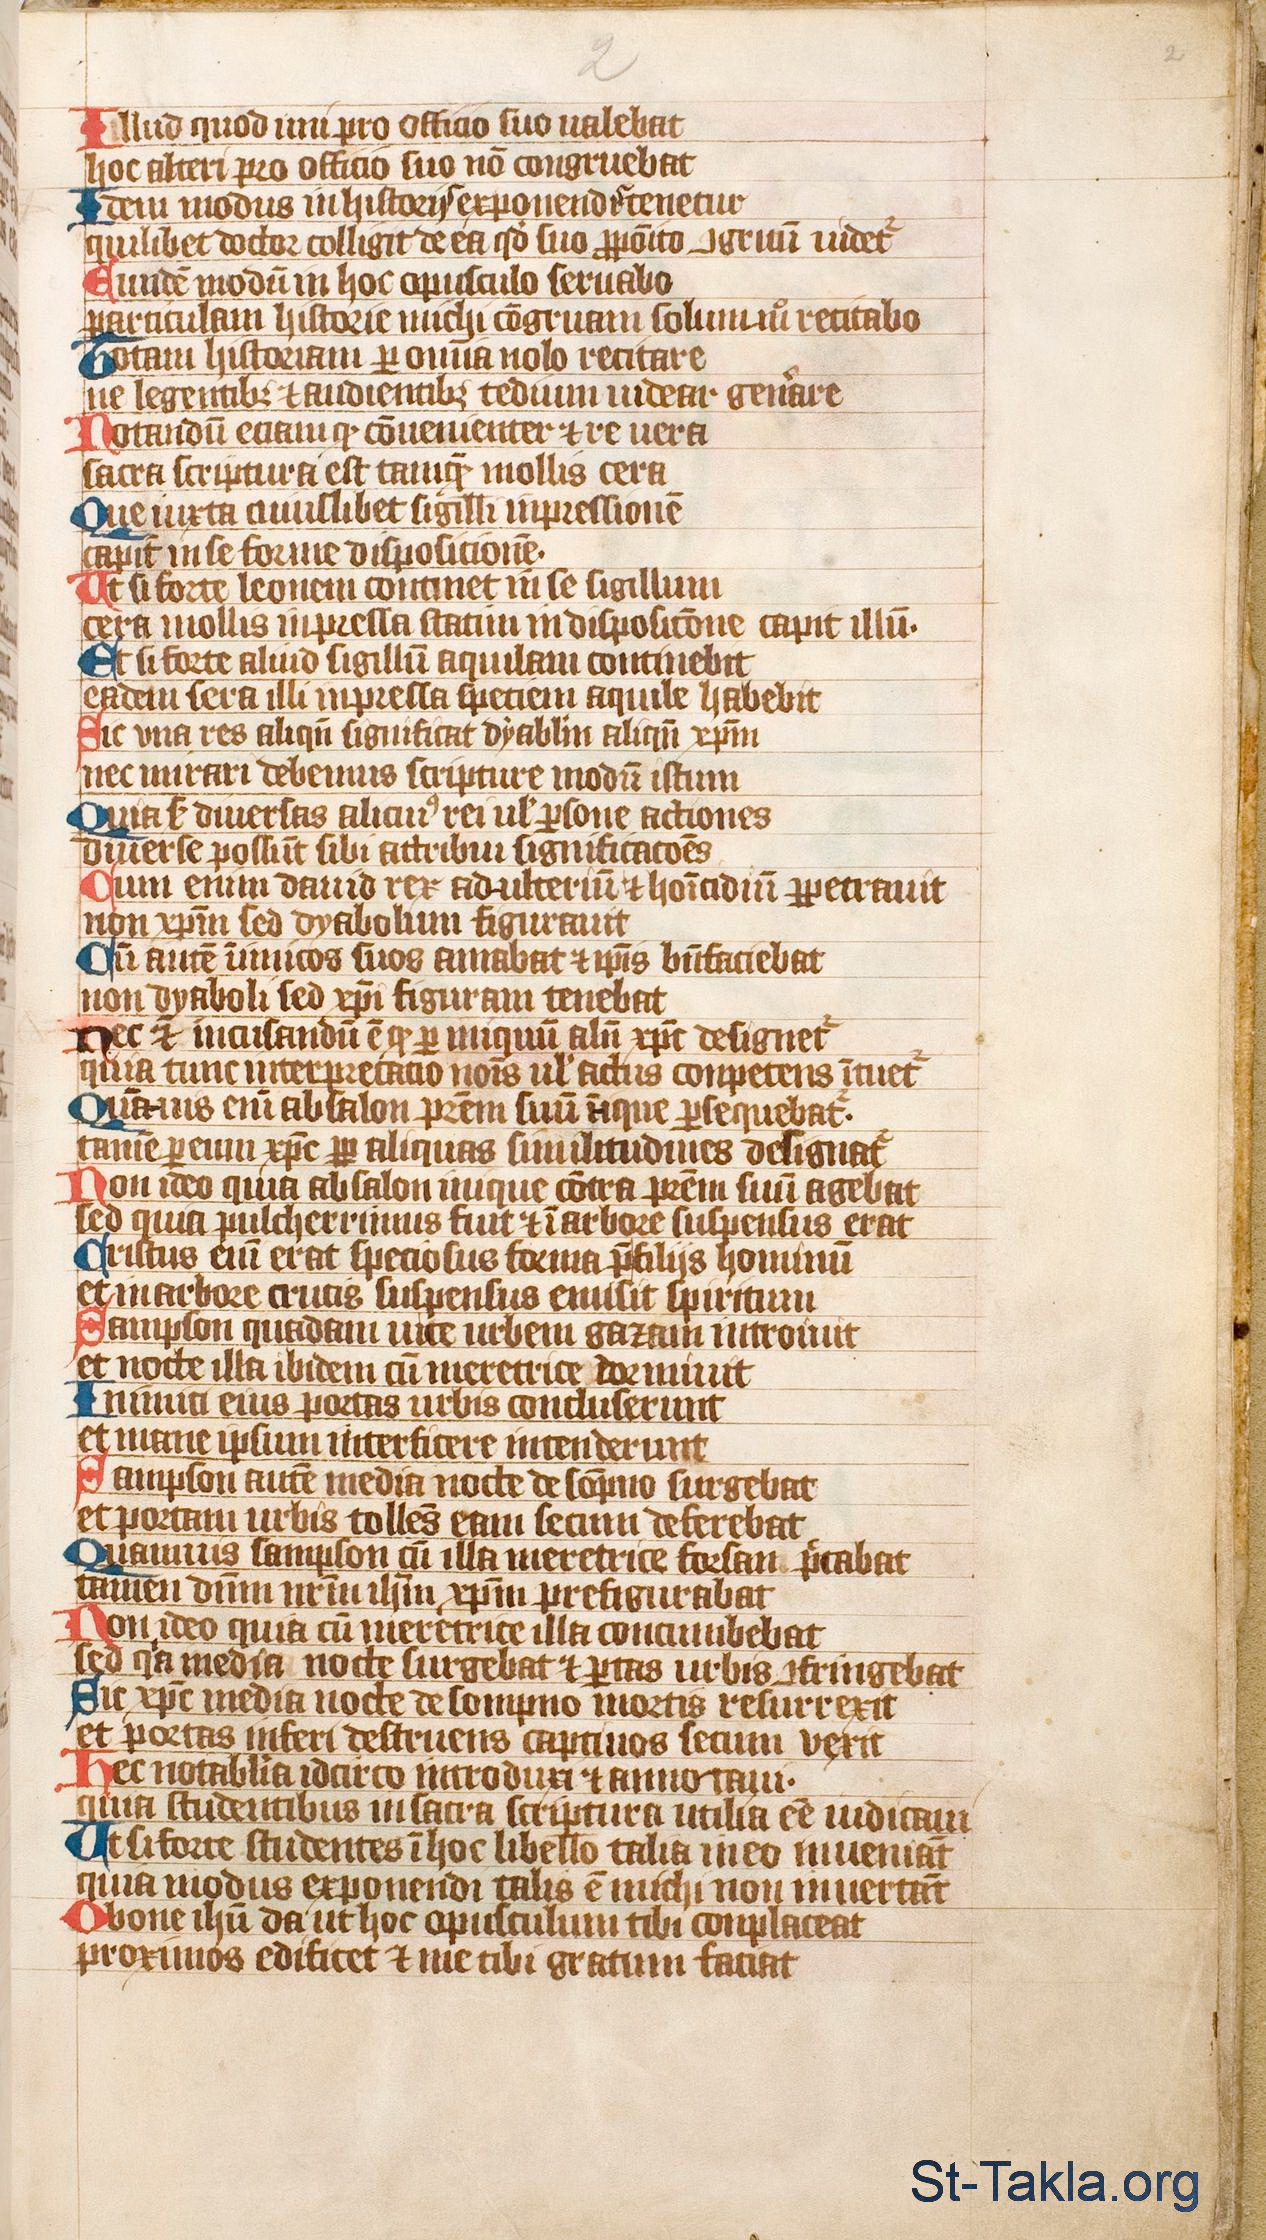 2
2
Illud quod uni pro officio suo ualebat
hoc alteri pro officio suo nō congruebat
Idem modus in historijs exponendis tenetur
quilibet doctor colligit de ea qđ suo ꝓpōito ꝯgruū uidet᷑
Eundē modū in hoc opusculo seruabo
particulam historie michi cōgruam solum m͛ recitabo
Totam historiam ꝑ om̄ia nolo recitare
ne legentibꝫ ⁊ audientibꝫ tedium uidear gen͛are
Notandū eciam ꝙ cōuenienter ⁊ re uera
sacra scriptura est tamq̄ mollis cera
Que iuxta cuiuslibet sigilli inpressionē
capit in se forme disposicionē.
Ut si forte leonem continet in se sigillum
cera mollis inpressa statim in disposicōne capit illū.
Et si forte aliud sigillū aquilam continebit
eadem sera illi inpressa speciem aquile habebit
Sic vna res aliqn̄ significat dyablm̄ aliqn̄ xp̄m
nec mirari debemus scripture modū istum
Quia diuersas alicuiꝰ rei ul̕ ꝑsone actiones
diuerse possūt sibi attribui significacōēs
Cum enim dauid rex adulteriū ⁊ hoīcidiū ꝑpetrauit
non xp̄m sed dyabolum figurauit
Cū autē inīmicos suos amabat ⁊ ip̄is bn̄faciebat
non dyaboli sed xp̄i figuram tenebat
Nec incusandū ē ꝙ ꝑ iniquū alīn xp̄c designet᷑
quia tunc interpretacio noīs ul̕ actus conpetens ītuet᷑
Quāuis enī absalon prēm suū īique ꝑsequebat᷑.
tamē ꝑ eum xp̄c ꝓpt aliquas similitudines designat᷑
Non ideo quia absalon inique cōtra prēm suū agebat
sed quia pulcherrimus fuit ⁊ ī arbore suspensus erat
Cristus enī erat speciosus forma p̄ filijs hominū
et in arbore crucis suspensus emisit spiritum
Sampson quadam uice urbem gazam introiuit
et nocte illa ibidem cū meretrice dormiuit
Inimici eius portas urbis concluserunt
et mane ipsum interficere intenderunt
Sampson autē media nocte de sōpno surgebat
et portam urbis tollēs eam secum deferebat
Quamuis sampson cū illa meretrice forsan p͛cabat
tamen dn̄m nr̄m ih̄m xp̄m prefigurabat
Non ideo quia cū meretrice illa concumbebat
sed qͣa media nocte surgebat ⁊ ꝑtas urbis ꝯfringebat
Sic xp̄c media nocte de sompno mortis resurrexit
et portas inferi destruens captiuos secum vexit
Hec notabl̕ia idcirco introduxi ⁊ annotaui.
quia studentibus in sacra scriptura utilia eē iudicaui
Ut si forte studentes ī hoc libello talia in eo inueniāt
quia modus exponendi talis ē michi non inuertāt
O bone ih̄u da ut hoc opusculum tibi conplaceat
proximos edificet ⁊ me tibi gratum faciat
St-Takla.org